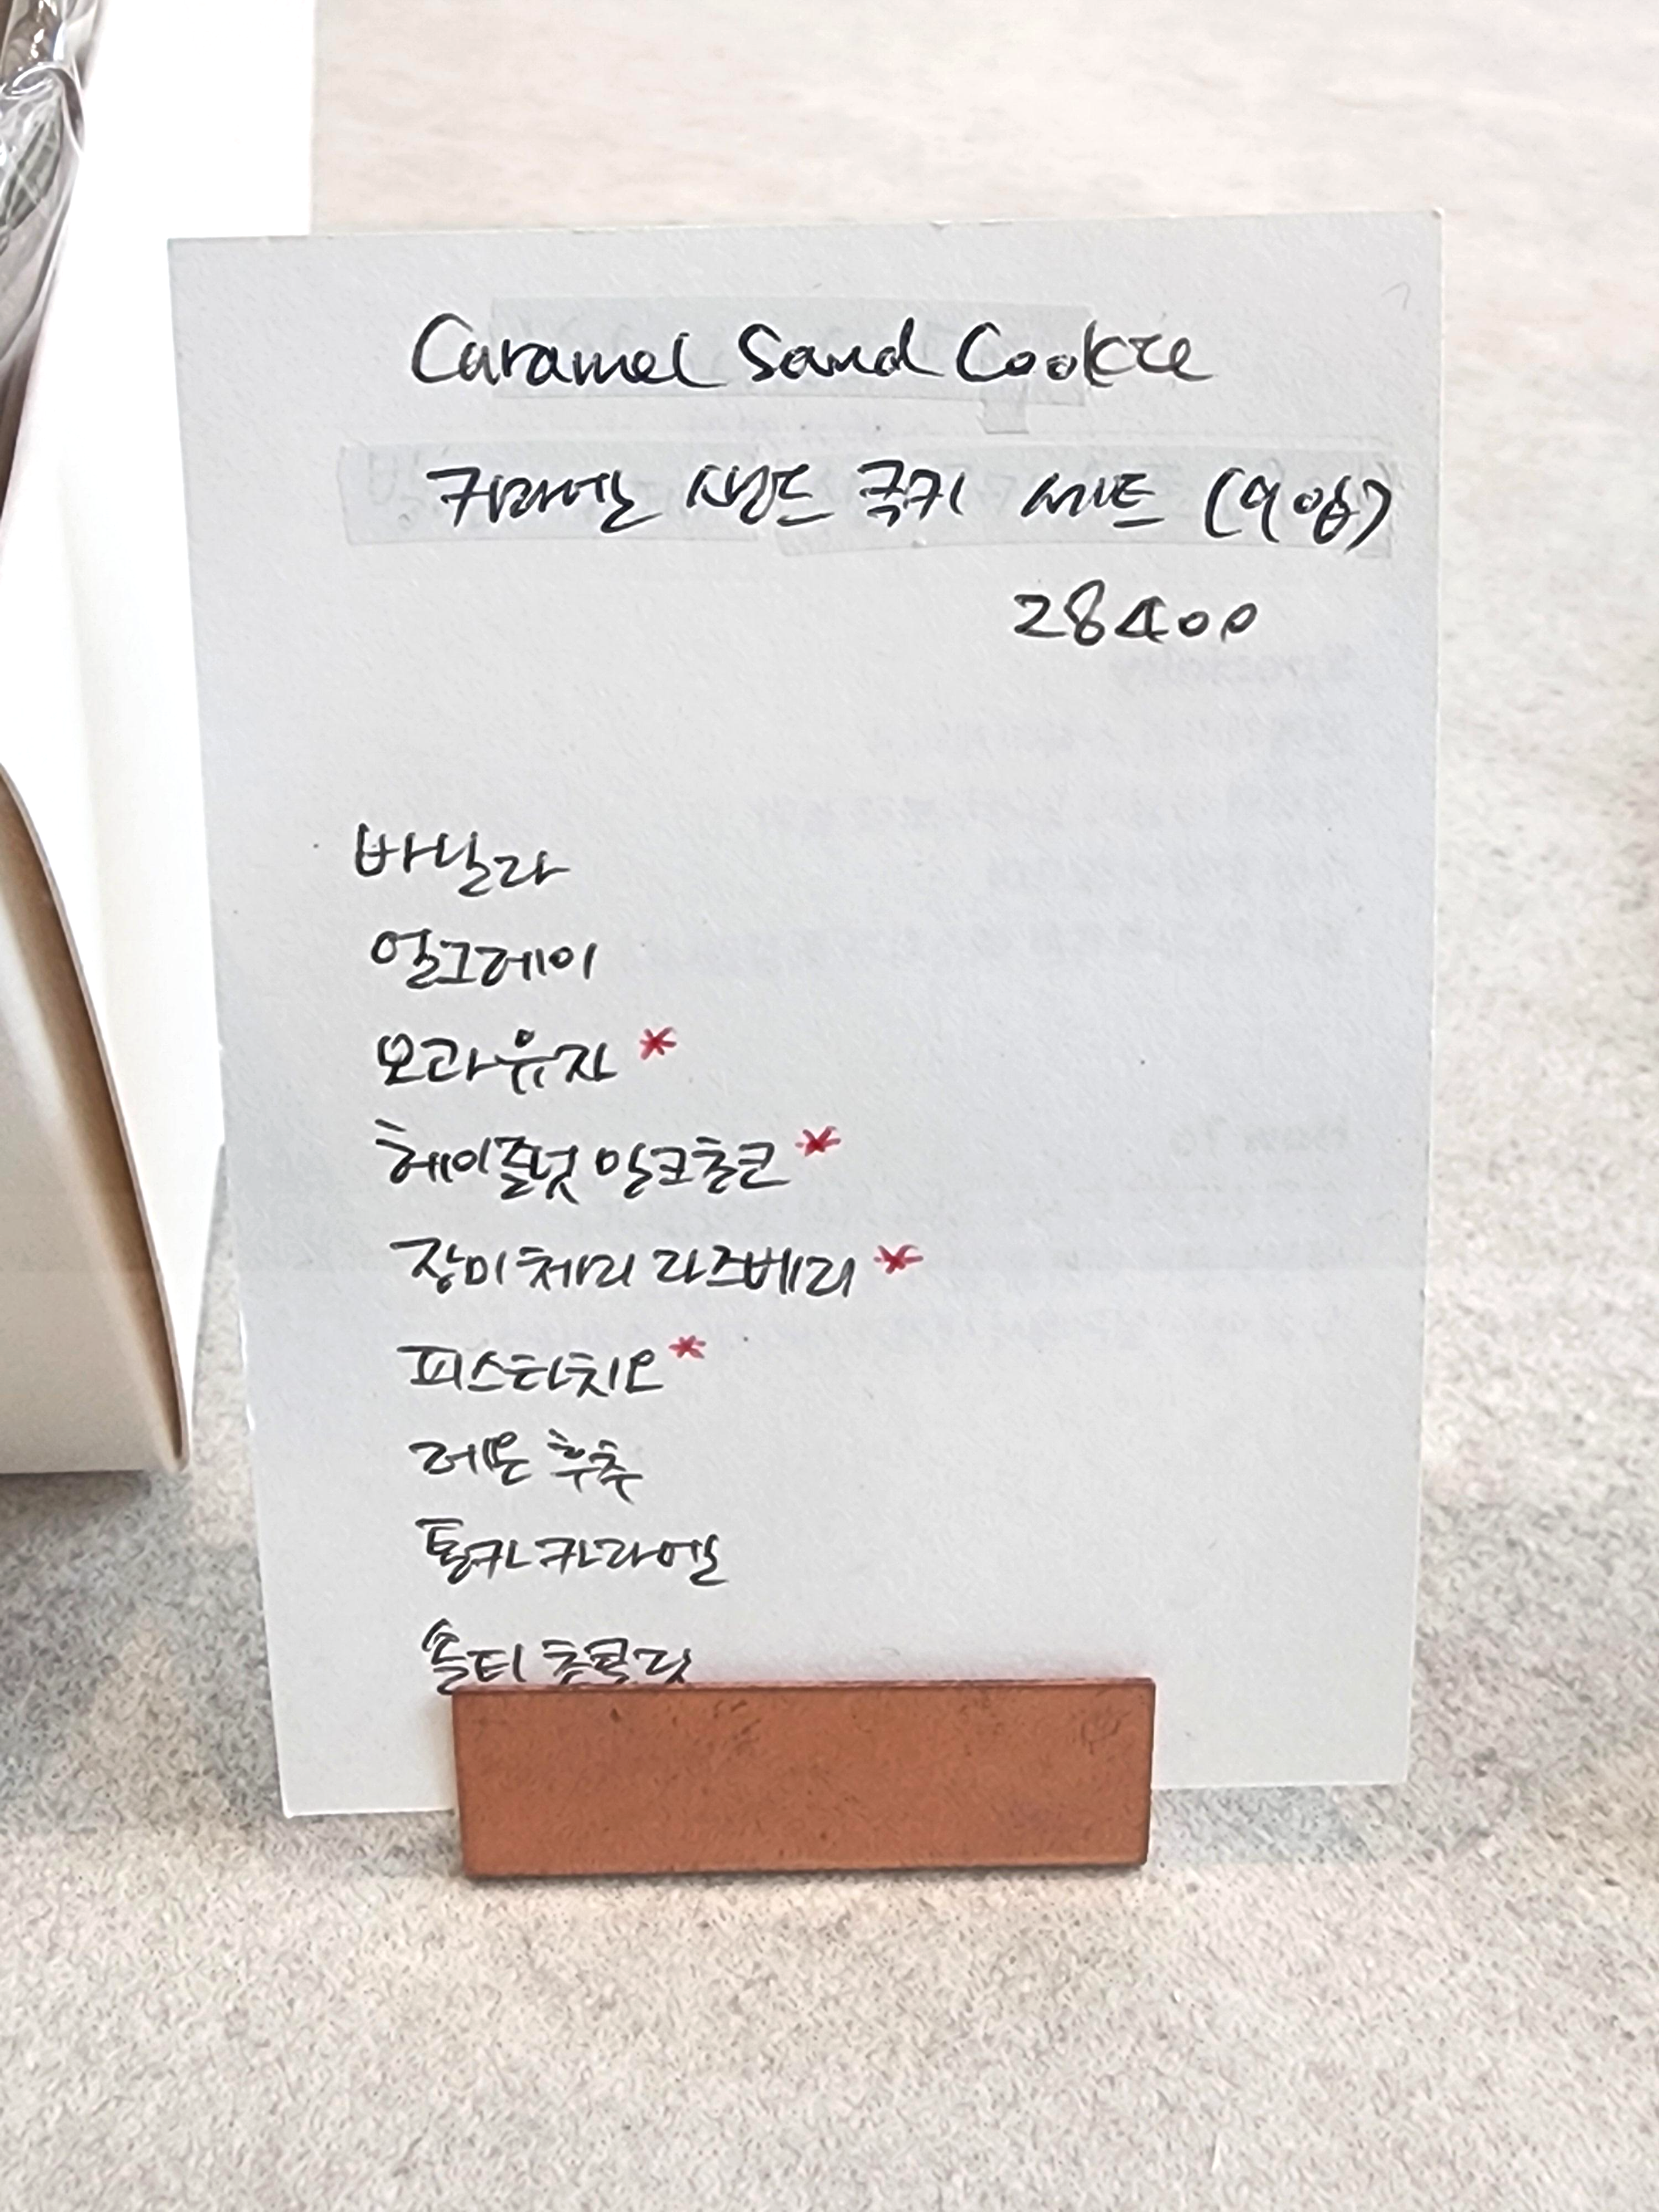 Caramel Sand Cookie
카라멜 샌드 쿡키 세트 (9입)
28400
바닐라
얼그레이
모과유자 *
헤이즐넛 밀크초코 *
장미체리 라즈베리 *
피스타치오 *
레몬 후추
통카 카라멜
솔티 초콜릿